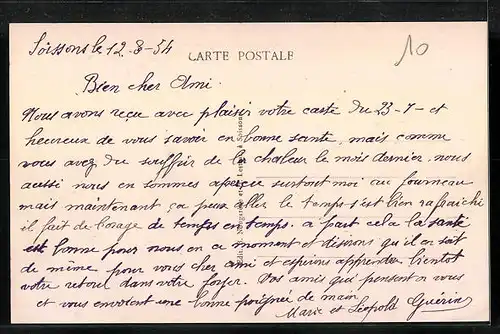 Soissons le 12-8-54
CARTE POSTALE
10
Bien cher Ami.
Nous avons reçu avec plaisir votre carte du 23-7- et
heureux de vous savoir en bonne santé, mais comme
vous avez du souffrir de la chaleur le mois dernier, nous
aussi nous en sommes aperçu surtout moi au fourneau
mais maintenant ça peux aller le temps s'est bien rafraichi
il fait de l'orage de temps en temps. a part cela la santé
est bonne pour nous en ce moment et désirons qu'il en soit
de même pour vous cher ami et espérons apprendre bientot
votre retour dans votre foyer. Vos amis qui pensent a vous
et vous envoient une bonne poignée de main
Marie et Léopold Guérin